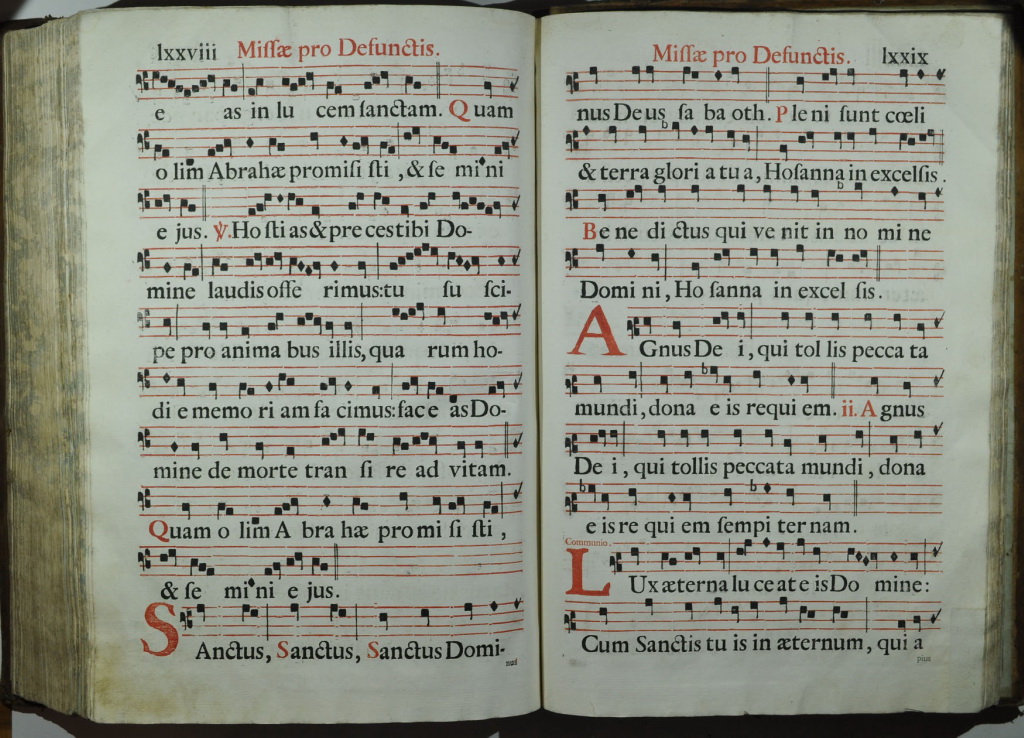 lxxviii Missæ pro Defunctis.
e as in lu cem sanctam. Quam
o lim Abrahæ promisi sti, & se mini
e jus. ℣. Ho sti as & pre cestibi Do-
mine laudis offe rimus: tu su sci-
pe pro anima bus illis, qua rum ho-
di e memo ri am fa cimus: fac e as Do-
mine de morte tran si re ad vitam.
Quam o lim A bra hæ pro mi si sti,
& se mi ni e jus.
SAnctus, Sanctus, Sanctus Domi-
Missæ pro Defunctis. lxxix
nus De us sa ba oth. Ple ni sunt cœli
& terra glori a tu a, Hosanna in excelsis.
Be ne di ctus qui ve nit in no mi ne
Domi ni, Ho sanna in excel sis.
AGnus De i, qui tol lis pecca ta
mundi, dona e is requi em. ii. Agnus
De i, qui tollis peccata mundi, dona
e is re qui em sempi ter nam.
Communio.
LUx æterna lu ce at e is Do mine:
Cum Sanctis tu is in æternum, qui a
pius